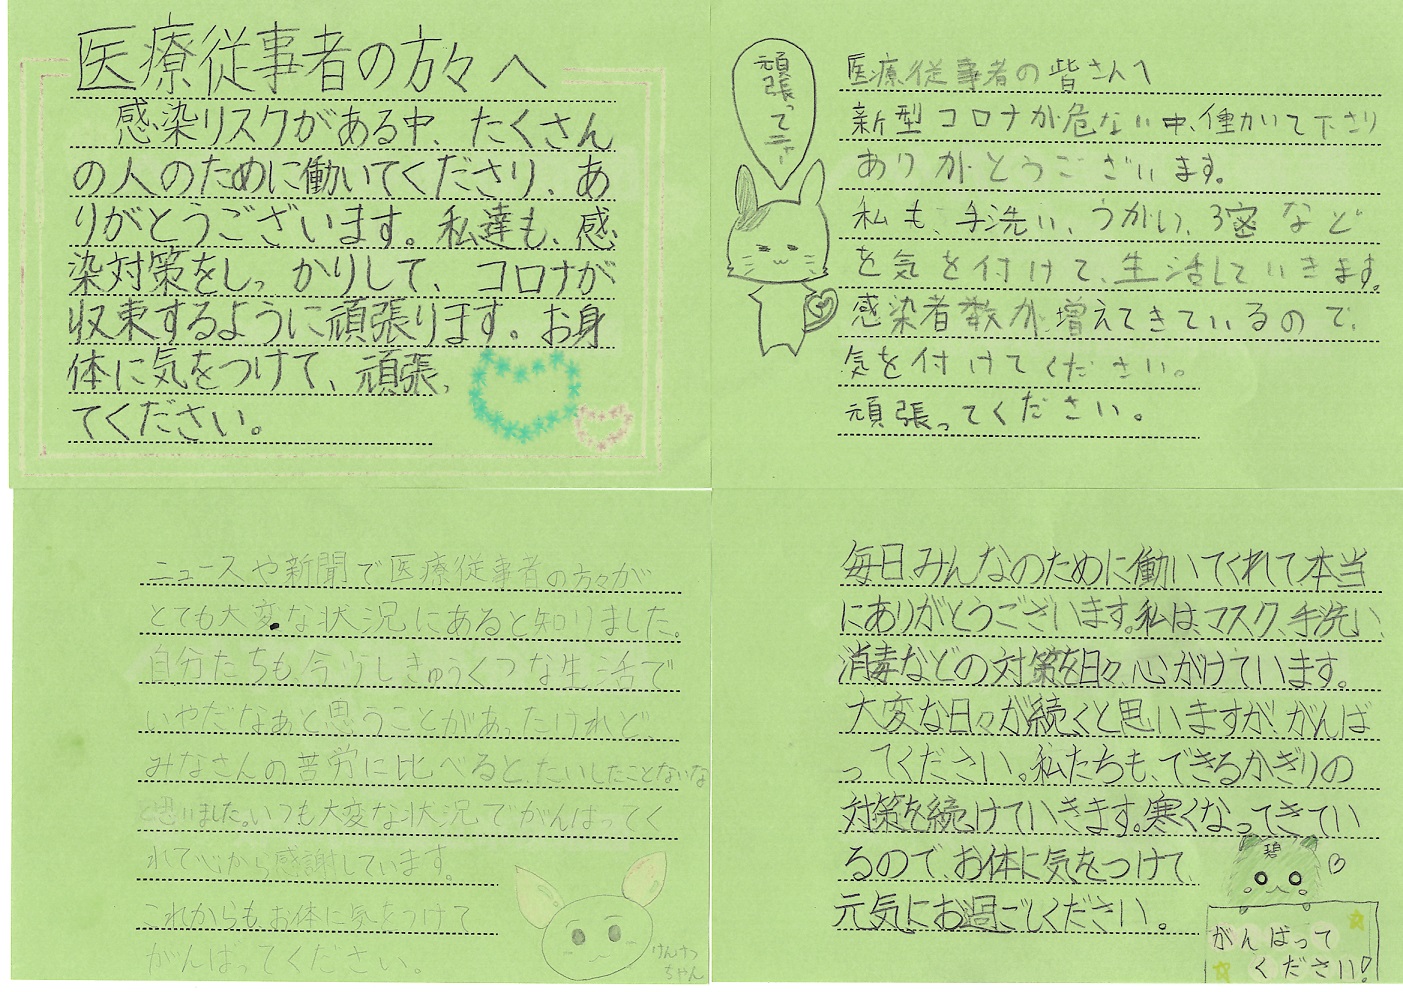 医療従事者の方々へ
感染リスクがある中、たくさん
の人のために働いてくださり、あ
りがとうございます。私達も、感
染対策をしっかりして、コロナが
収束するように頑張ります。お身
体に気をつけて、頑張っ
てください。
頑張ってニャ
医療従事者の皆さんへ
新型コロナが危ない中、働かいて下さり
ありがとうございます。
私も、手洗い、うがい、3密など
を気を付けて、生活していきます。
感染者数が増えてきているので、
気を付けてください。
頑張ってください。
ニュースや新聞で医療従事者の方々が
とても大変な状況にあると知りました。
自分たちも今少しきゅうくつな生活で
いやだなぁと思うことがあったけれど、
みなさんの苦労に比べると、たいしたことないな
と思いました。いつも大変な状況でがんばってく
れて心から感謝しています。
これからも、お体に気をつけて
がんばってください。
けんけつ
ちゃん
毎日みんなのために働いてくれて本当
にありがとうございます。私は、マスク、手洗い、
消毒などの対策を日々心がけています。
大変な日々が続くと思いますが、がんば
ってください。私たちも、できるかぎりの
対策を続けていきます。寒くなってきてい
るので、お体に気をつけて、
元気にお過ごしください。
碧
がんばって
ください!